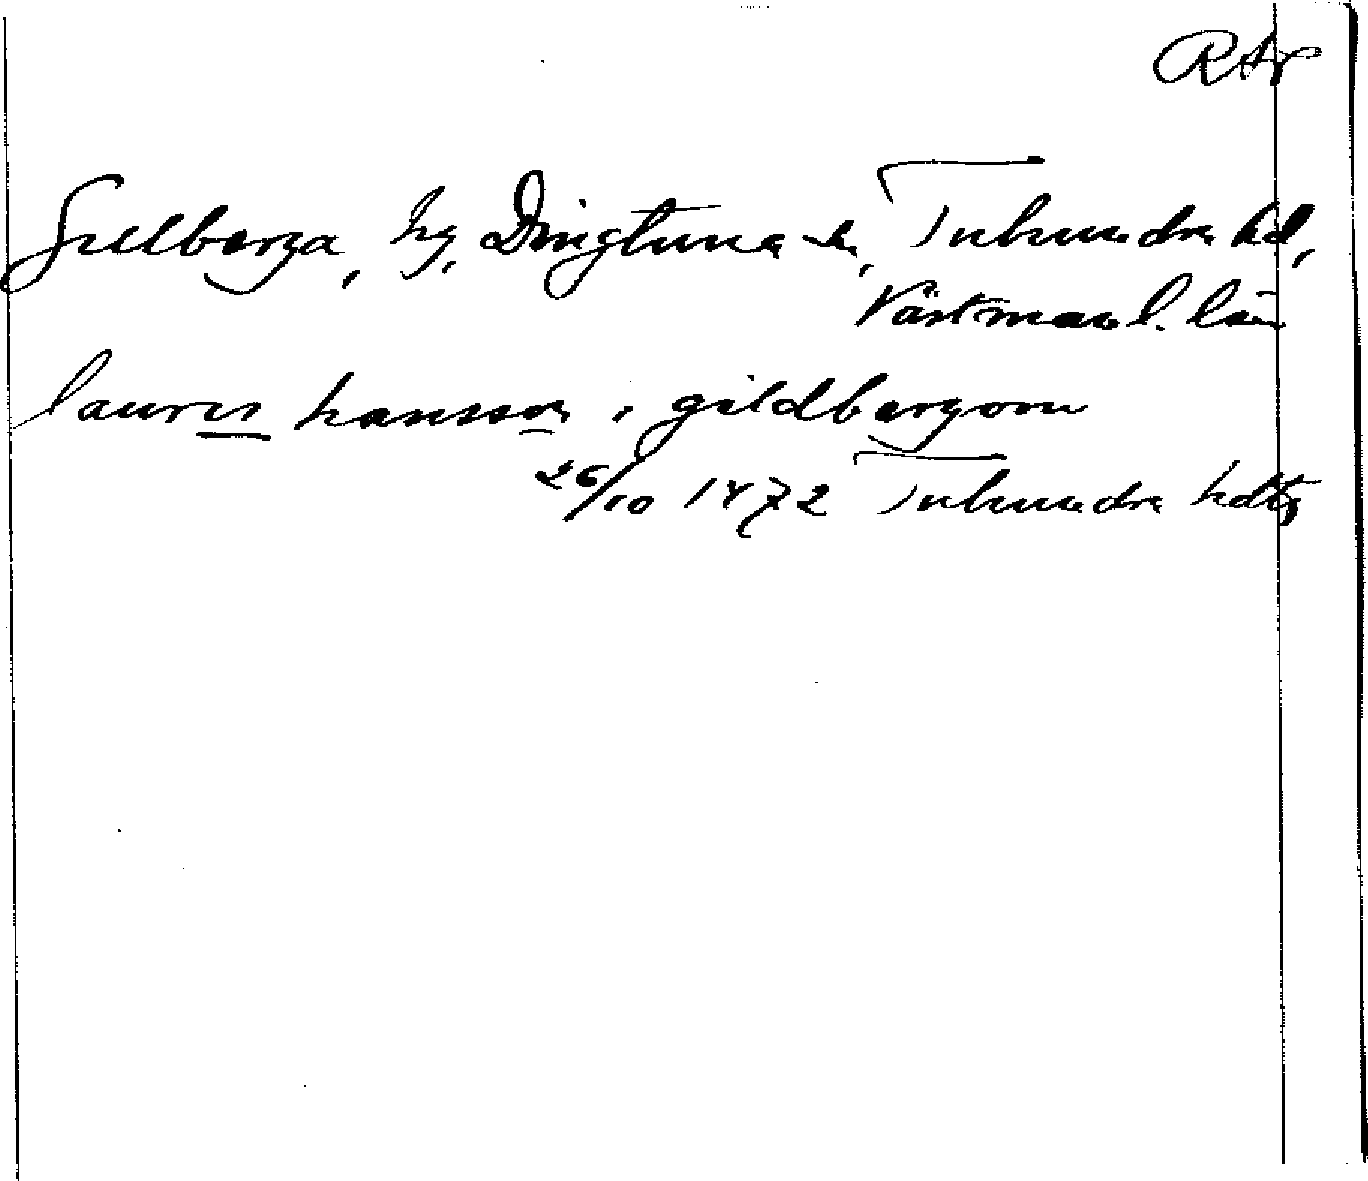 RAp
Gillberga, hg, Dingtuna sn, Tuhundra hd,
Västmanl. län
laurens hansson i gildbergom
26/10 1472 Tuhundra hdtg